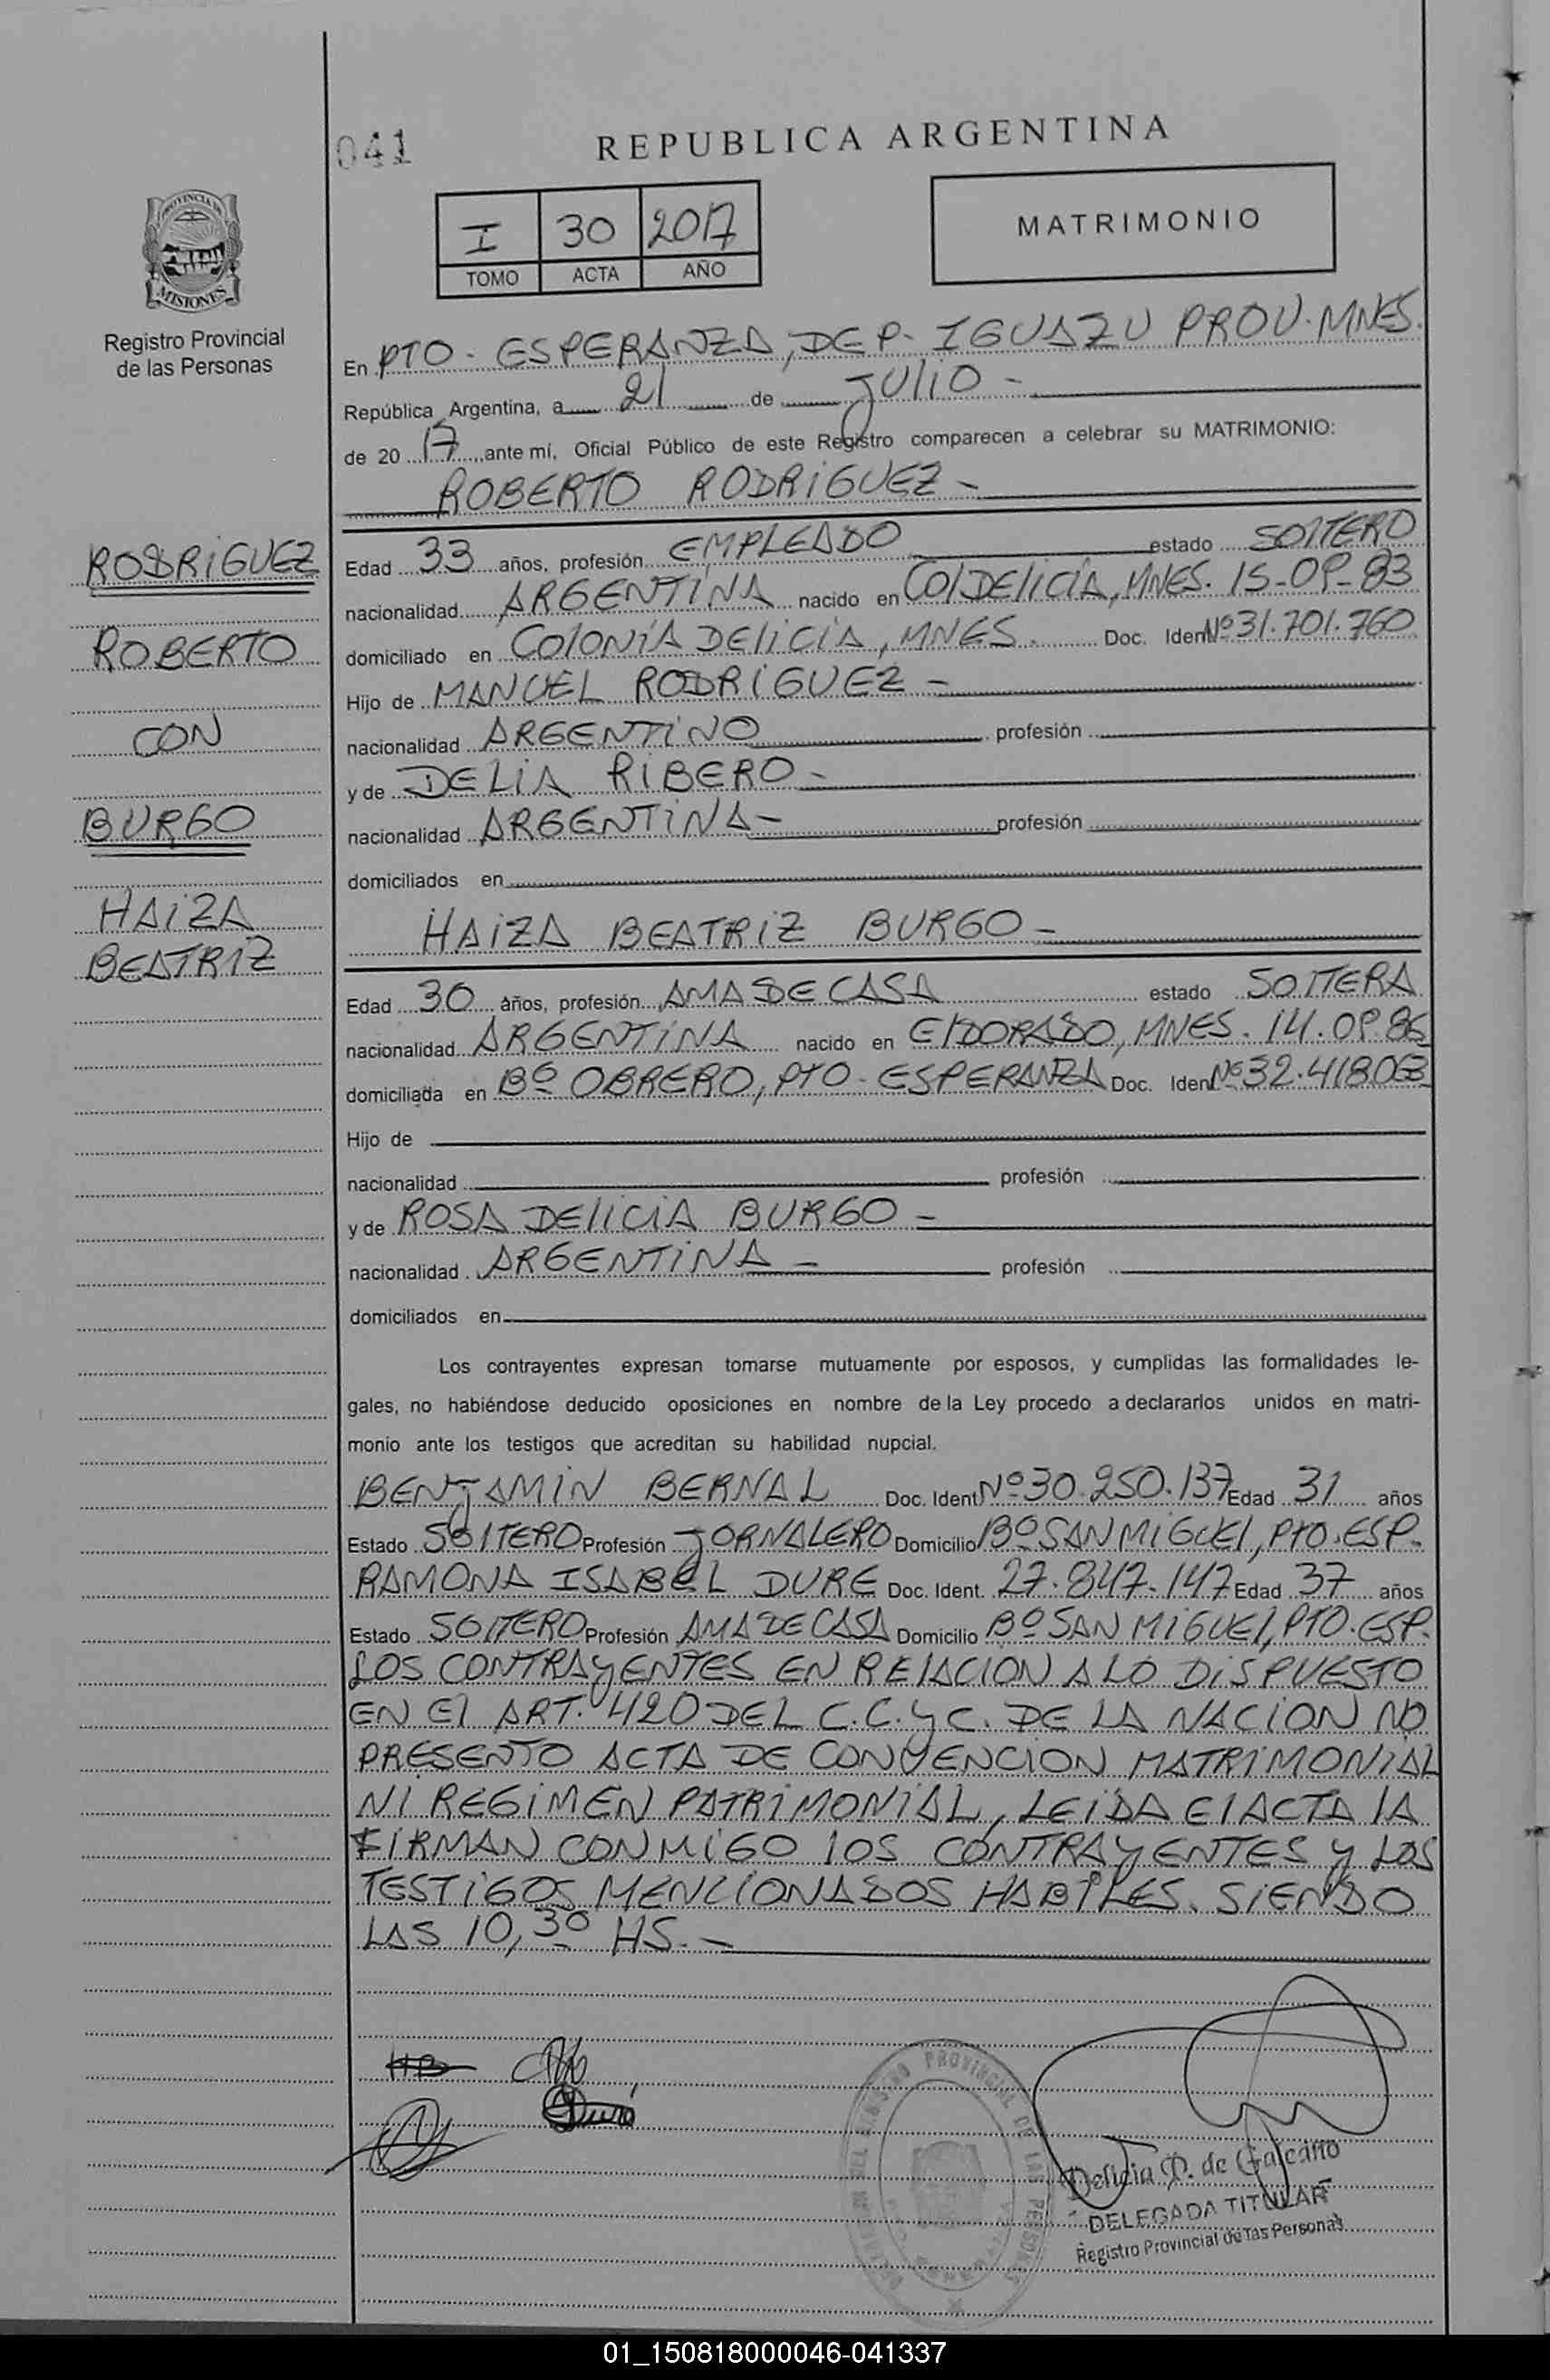 041
REPUBLICA ARGENTINA
I 30 2017
TOMO ACTA AÑO
MATRIMONIO
PROVINCIA DE
MISIONES
Registro Provincial
de las Personas
En PTO. ESPERANZA, DEP. IGUAZU PROV. MNES.
República Argentina, a 21 de JULIO -
de 2017 ante mí, Oficial Público de este Registro comparecen a celebrar su MATRIMONIO:
ROBERTO RODRIGUEZ -
RODRIGUEZ
ROBERTO
CON
BURGO
HAIZA
BEATRIZ
Edad 33 años, profesión EMPLEADO estado SOLTERO
nacionalidad ARGENTINA nacido en COL DELICIA, MNES. 15-09-83
domiciliado en COLONIA DELICIA, MNES. Doc. Iden Nº 31.701.760
Hijo de MANUEL RODRIGUEZ -
nacionalidad ARGENTINO profesión
y de DELIA RIBERO -
nacionalidad ARGENTINA - profesión
domiciliados en
HAIZA BEATRIZ BURGO -
Edad 30 años, profesión AMA DE CASA estado SOLTERA
nacionalidad ARGENTINA nacido en ELDORADO, MNES. 14.09.86
domiciliada en Bº OBRERO, PTO. ESPERANZA Doc. Iden Nº 32.418.063
Hijo de
nacionalidad profesión
y de ROSA DELICIA BURGO -
nacionalidad ARGENTINA - profesión
domiciliados en
Los contrayentes expresan tomarse mutuamente por esposos, y cumplidas las formalidades le-
gales, no habiéndose deducido oposiciones en nombre de la Ley procedo a declararlos unidos en matri-
monio ante los testigos que acreditan su habilidad nupcial.
BENJAMIN BERNAL Doc. Ident Nº 30.250.137 Edad 31 años
Estado SOLTERO Profesión JORNALERO Domicilio Bº SAN MIGUEL, PTO. ESP.
RAMONA ISABEL DURE Doc. Ident. 27.847.147 Edad 37 años
Estado SOLTERO Profesión AMA DE CASA Domicilio Bº SAN MIGUEL, PTO. ESP.
LOS CONTRAYENTES EN RELACION A LO DISPUESTO
EN EL ART. 420 DEL C.C.y C. DE LA NACION NO
PRESENTO ACTA DE CONVENCION MATRIMONIAL
NI REGIMEN PATRIMONIAL, LEIDA EL ACTA LA
FIRMAN CONMIGO LOS CONTRAYENTES y LOS
TESTIGOS MENCIONADOS HABILES. SIENDO
LAS 10,30 HS. -
HB
Duré
REGISTRO PROVINCIAL DE LAS PERSONAS
Delicia D. de Galeano
DELEGADA TITULAR
Registro Provincial de las Personas
01_150818000046-041337